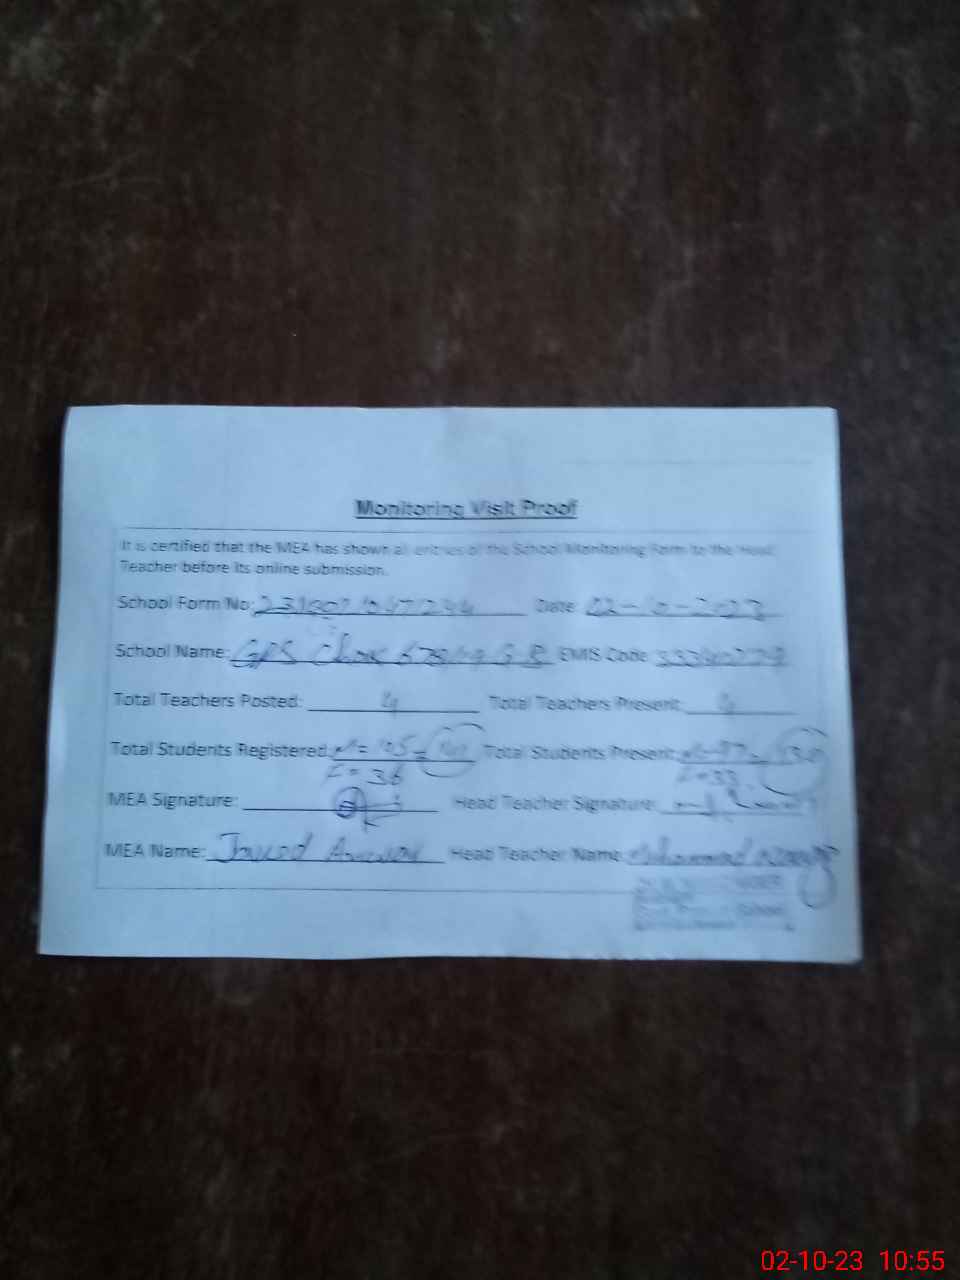 Monitoring Visit Proof
It is certified that the MEA has shown all entries of the School Monitoring Form to the Head
Teacher before its online submission.
School Form No: Date: 02-10-2023
School Name: GPS Chak 678/19 G.B EMIS Code:
Total Teachers Posted: 4 Total Teachers Present: 4
Total Students Registered: M=105 = 141 Total Students Present: M=97 = 130
F=36 F=33
MEA Signature: Head Teacher Signature:
MEA Name: Javed Head Teacher Name: Muhammad
02-10-23 10:55